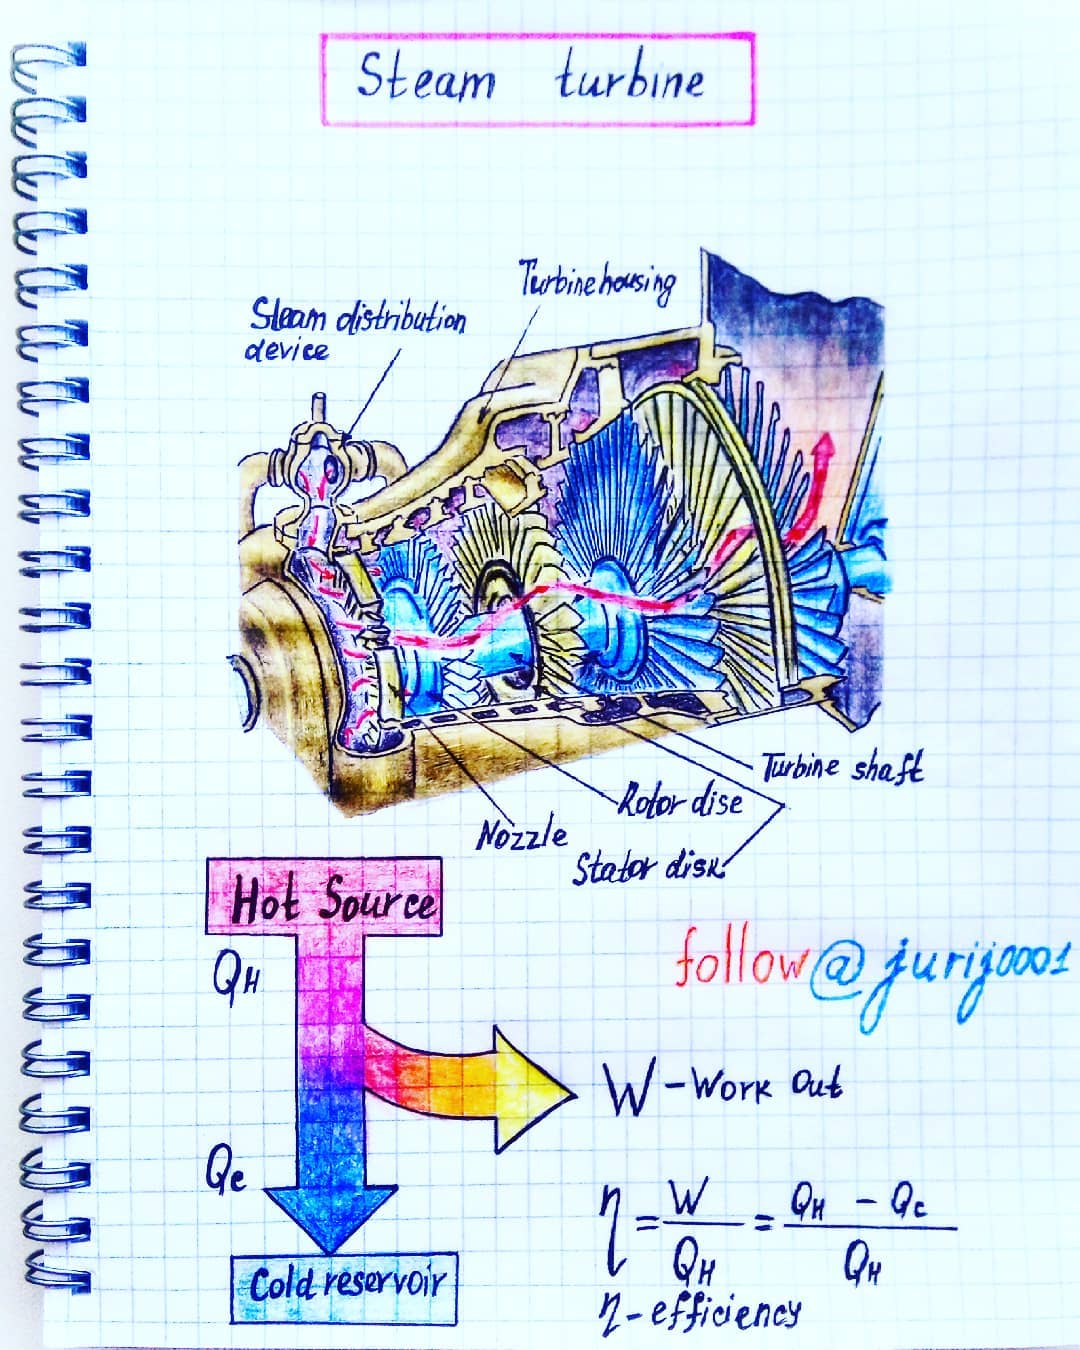 Steam turbine
Turbine housing
Steam distribution
device
Turbine shaft
Rotor dise
Nozzle
Stator disk.
Hot Source
QH
follow @jurij0001
W - Work Out
Qc
η = W / QH = QH - Qc / QH
Cold reservoir
η - efficiency